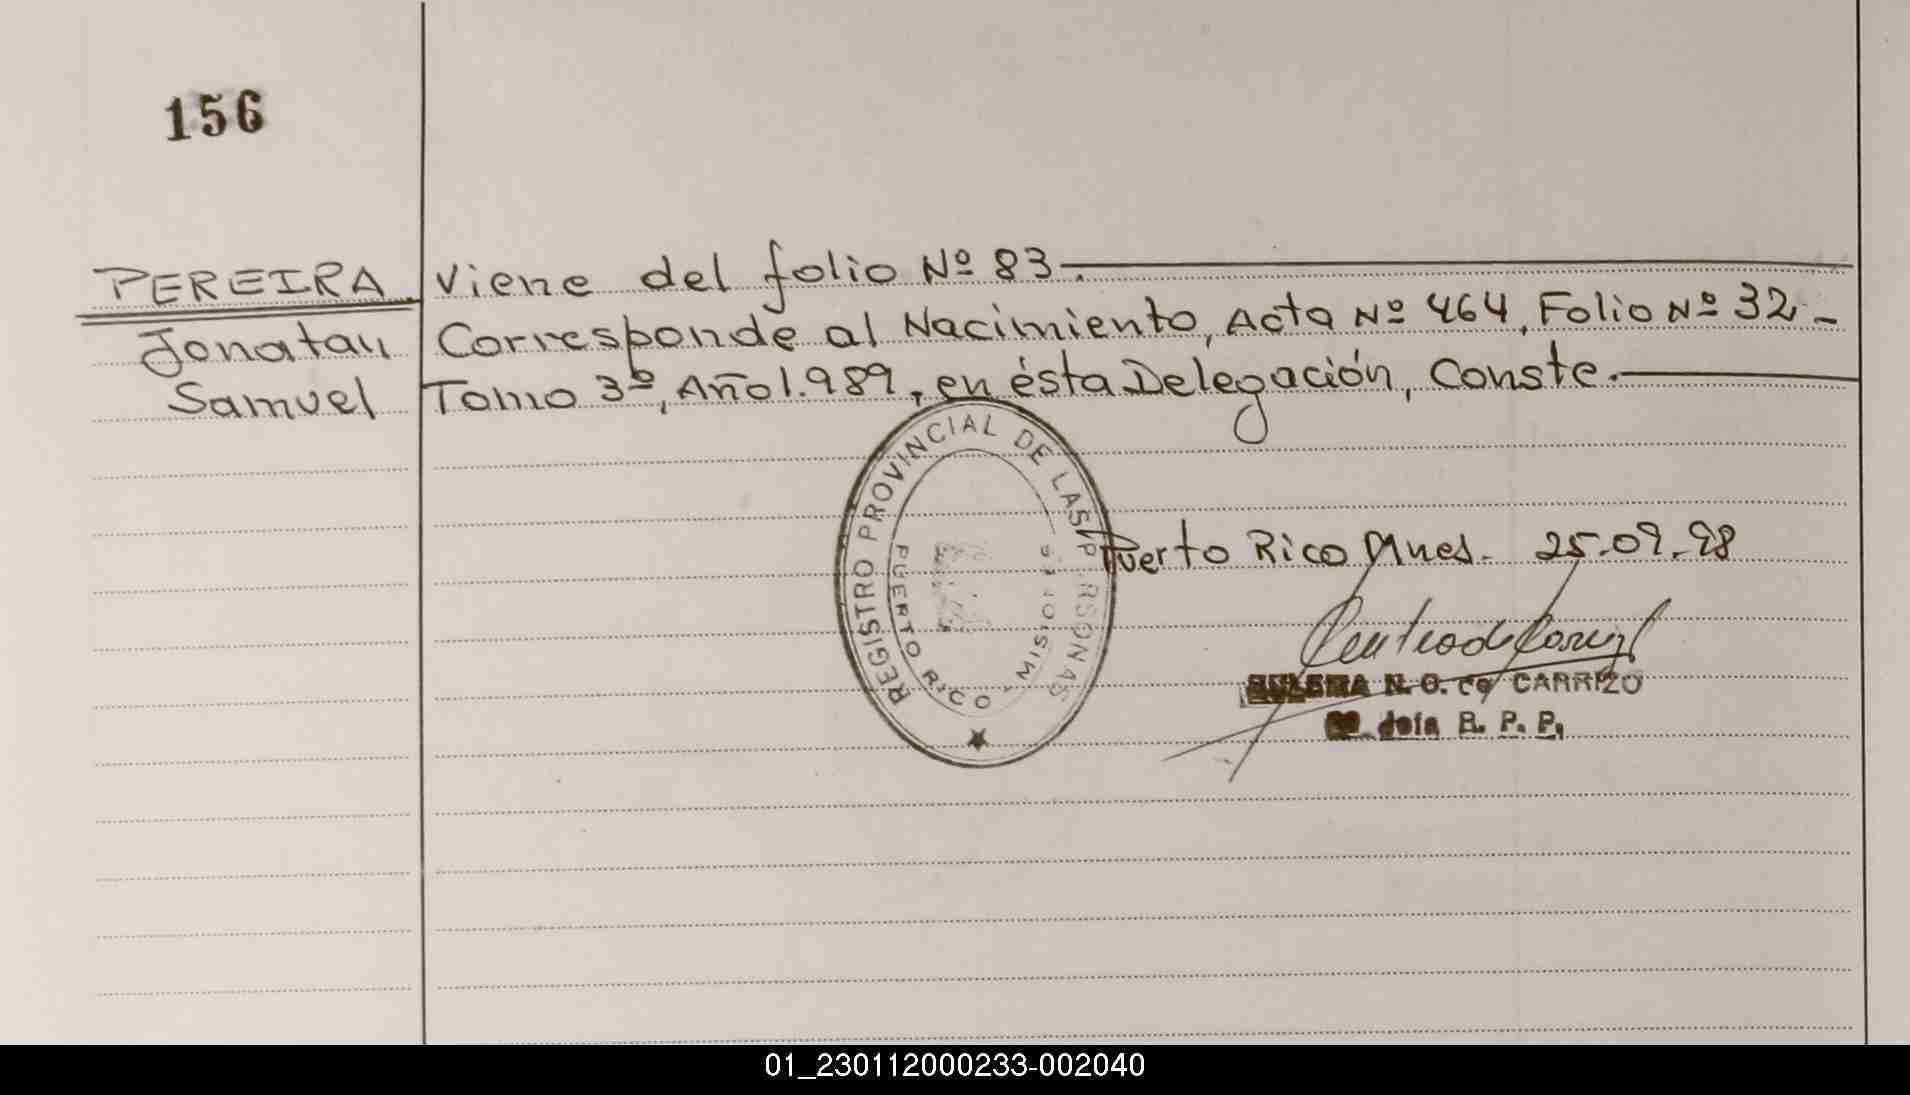 156
PEREIRA
Jonatan
Samuel
Viene del folio Nº 83.
Corresponde al Nacimiento, Acta Nº 464, Folio Nº 32 -
Tomo 3º, Año 1.989, en ésta Delegación, Conste.
REGISTRO PROVINCIAL DE LAS P RSONAS
PUERTO RICO - MISIONES
Puerto Rico Mnes. 25.09.98
N. G. de CARRIZO
Jefa R. P. P.
01_230112000233-002040